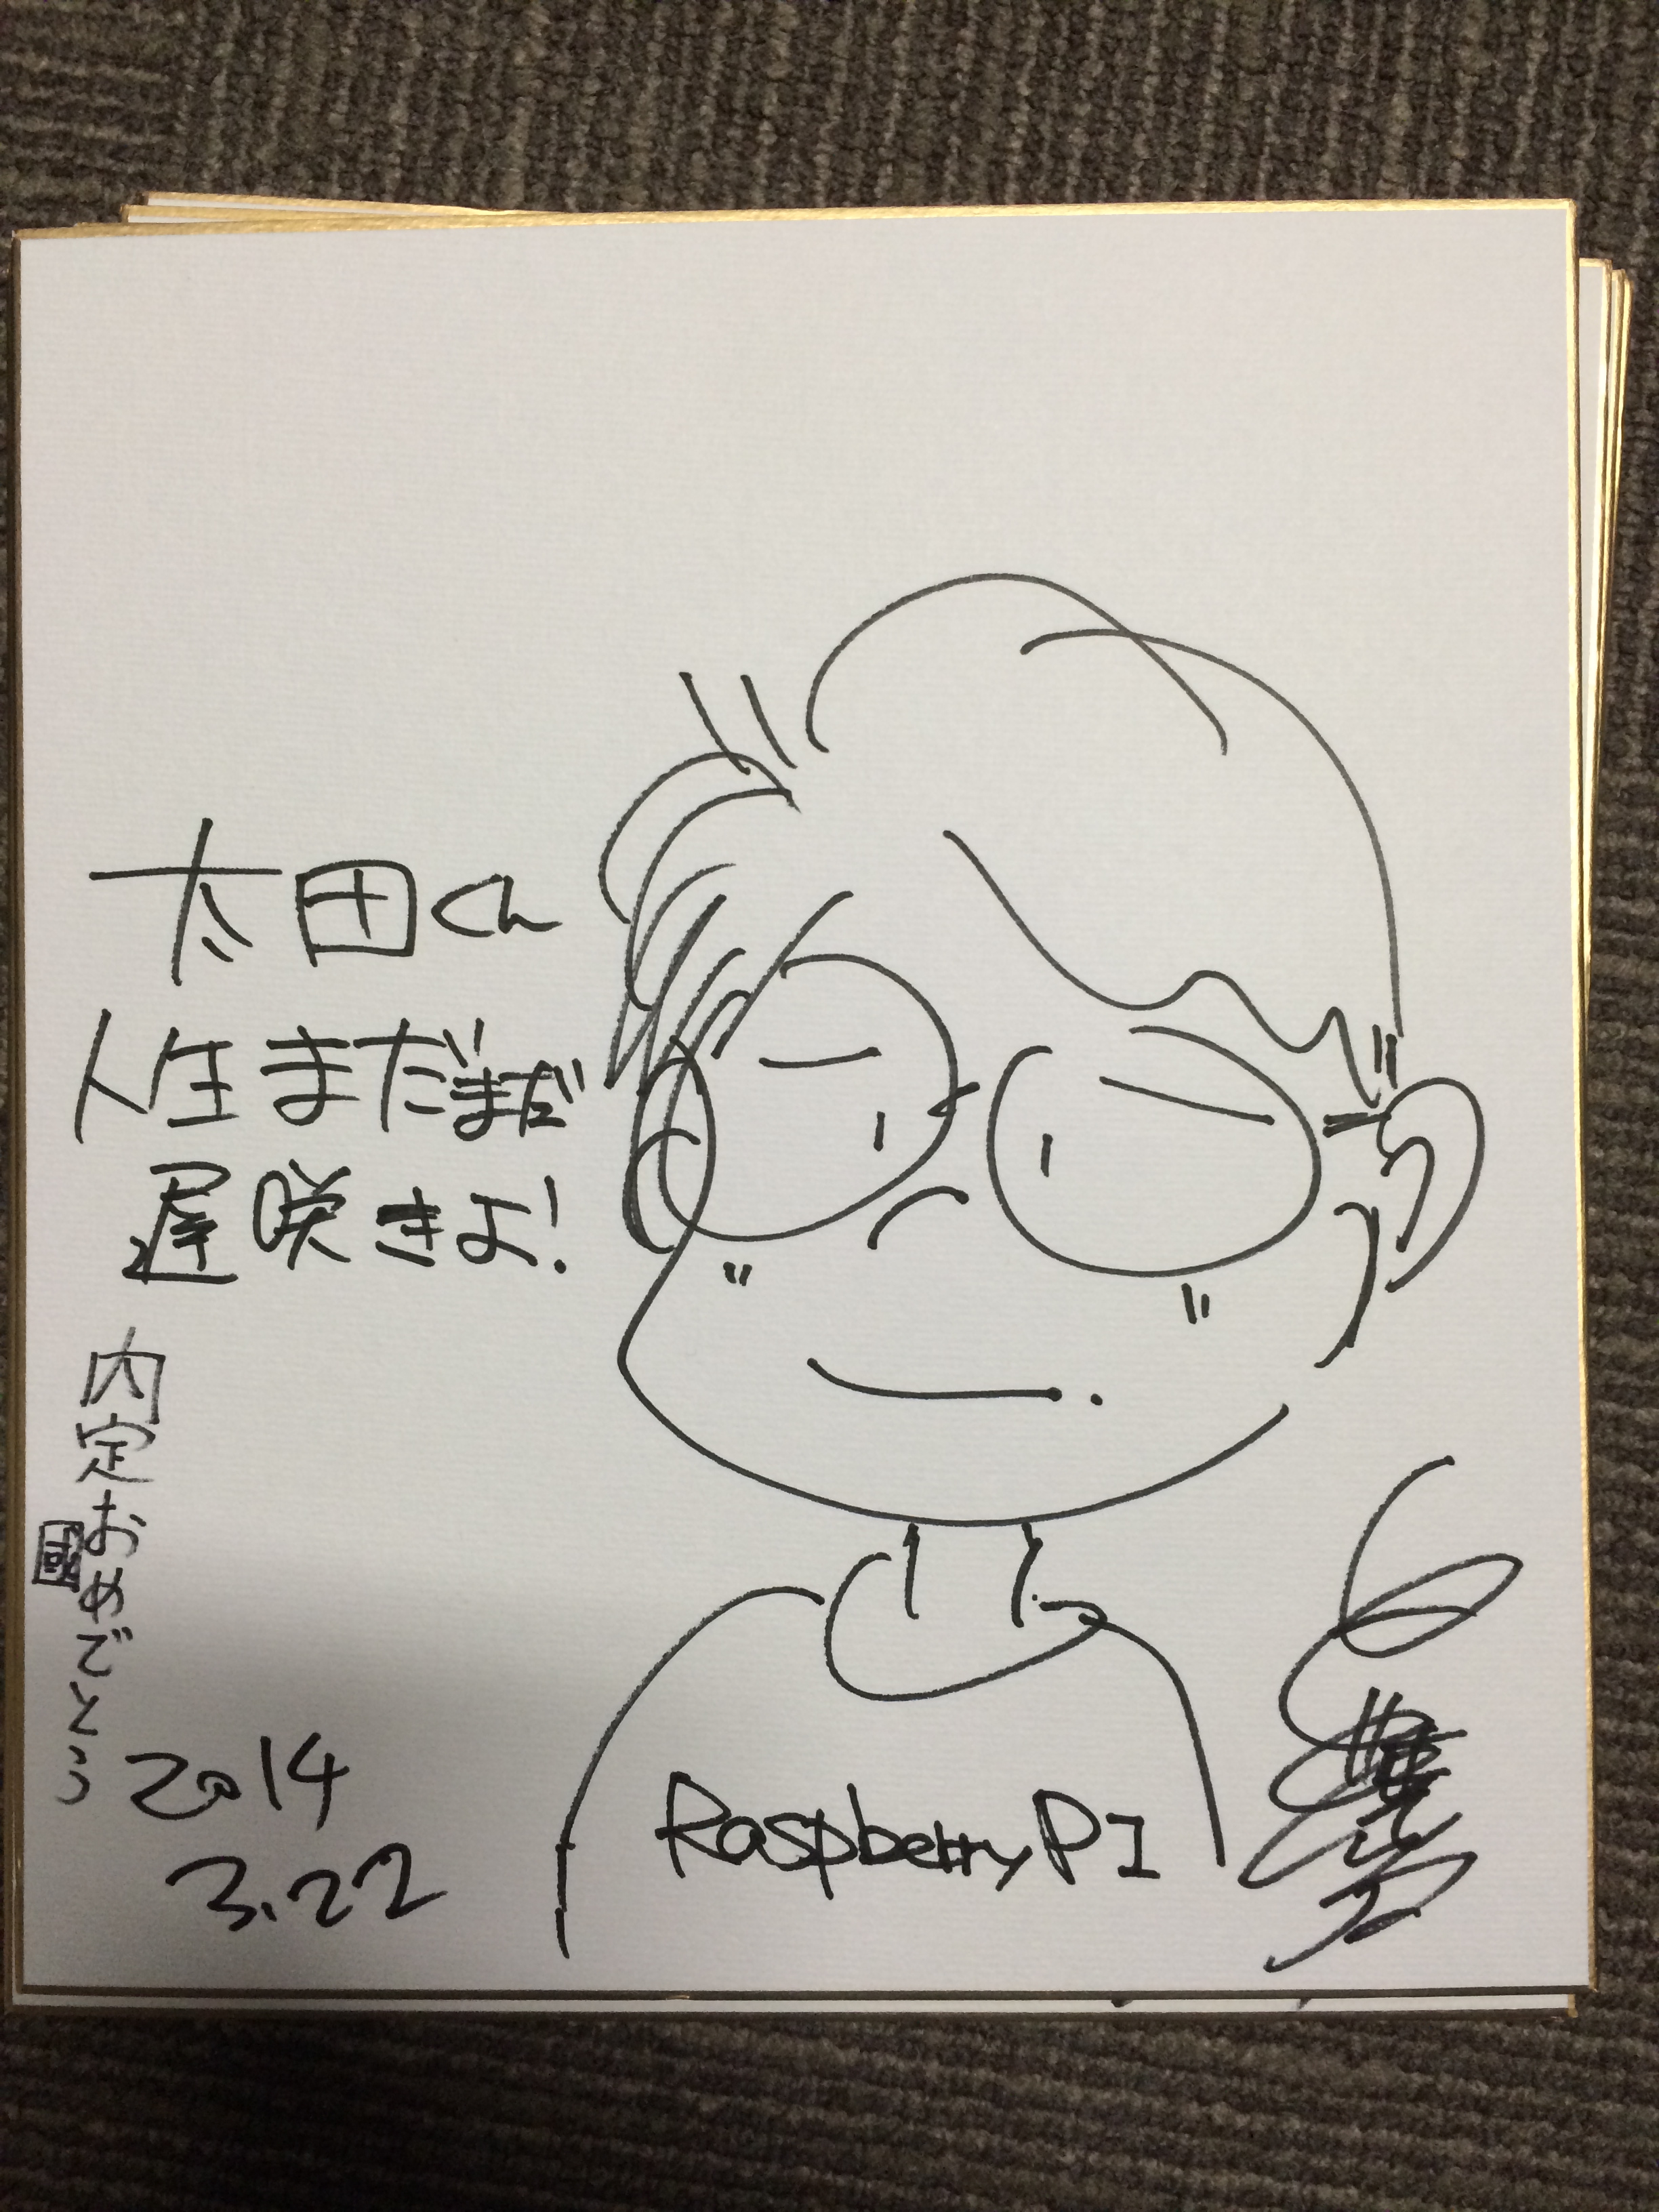 太田くん
人生まだまだ
遅咲きよ!
内定おめでとう
2014
3.22
RaspberryPI